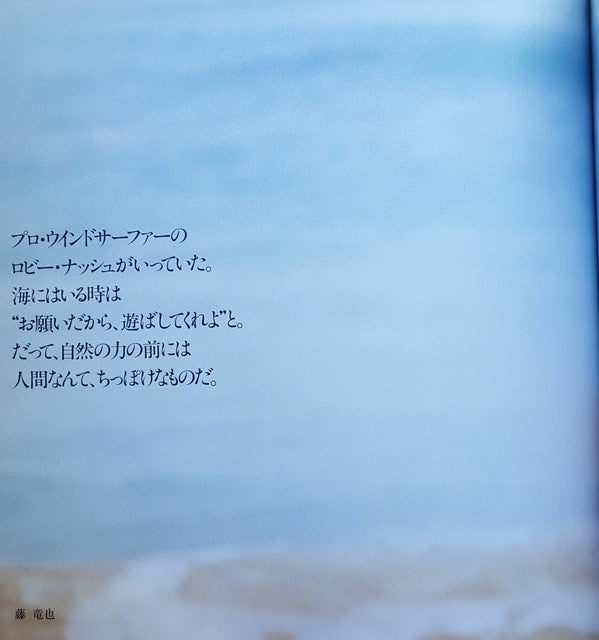 プロ・ウインドサーファーの
ロビー・ナッシュがいっていた。
海にはいる時は
“お願いだから、遊ばしてくれよ”と。
だって、自然の力の前には
人間なんて、ちっぽけなものだ。
藤 竜也